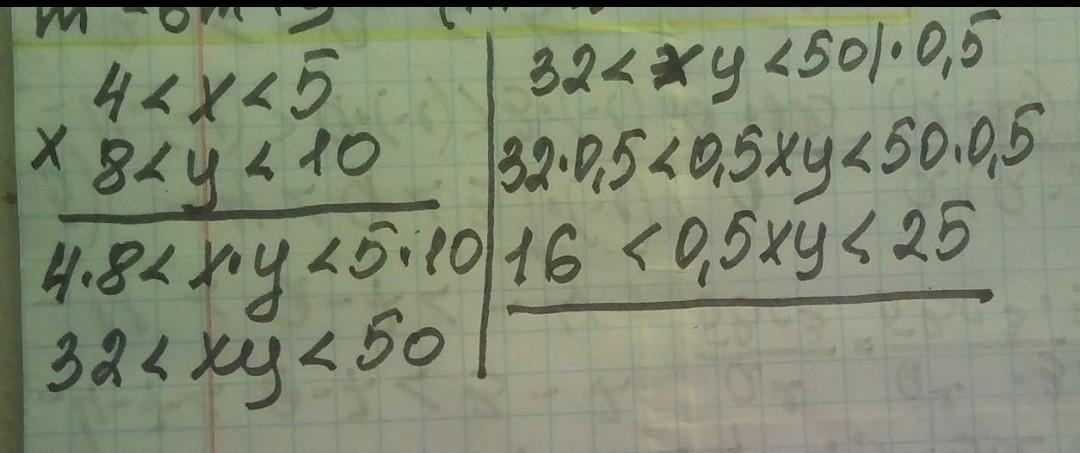 4 < x < 5
x 8 < y < 10
4·8 < x·y < 5·10
32 < xy < 50
32 < xy < 50 |·0,5
32·0,5 < 0,5xy < 50·0,5
16 < 0,5xy < 25